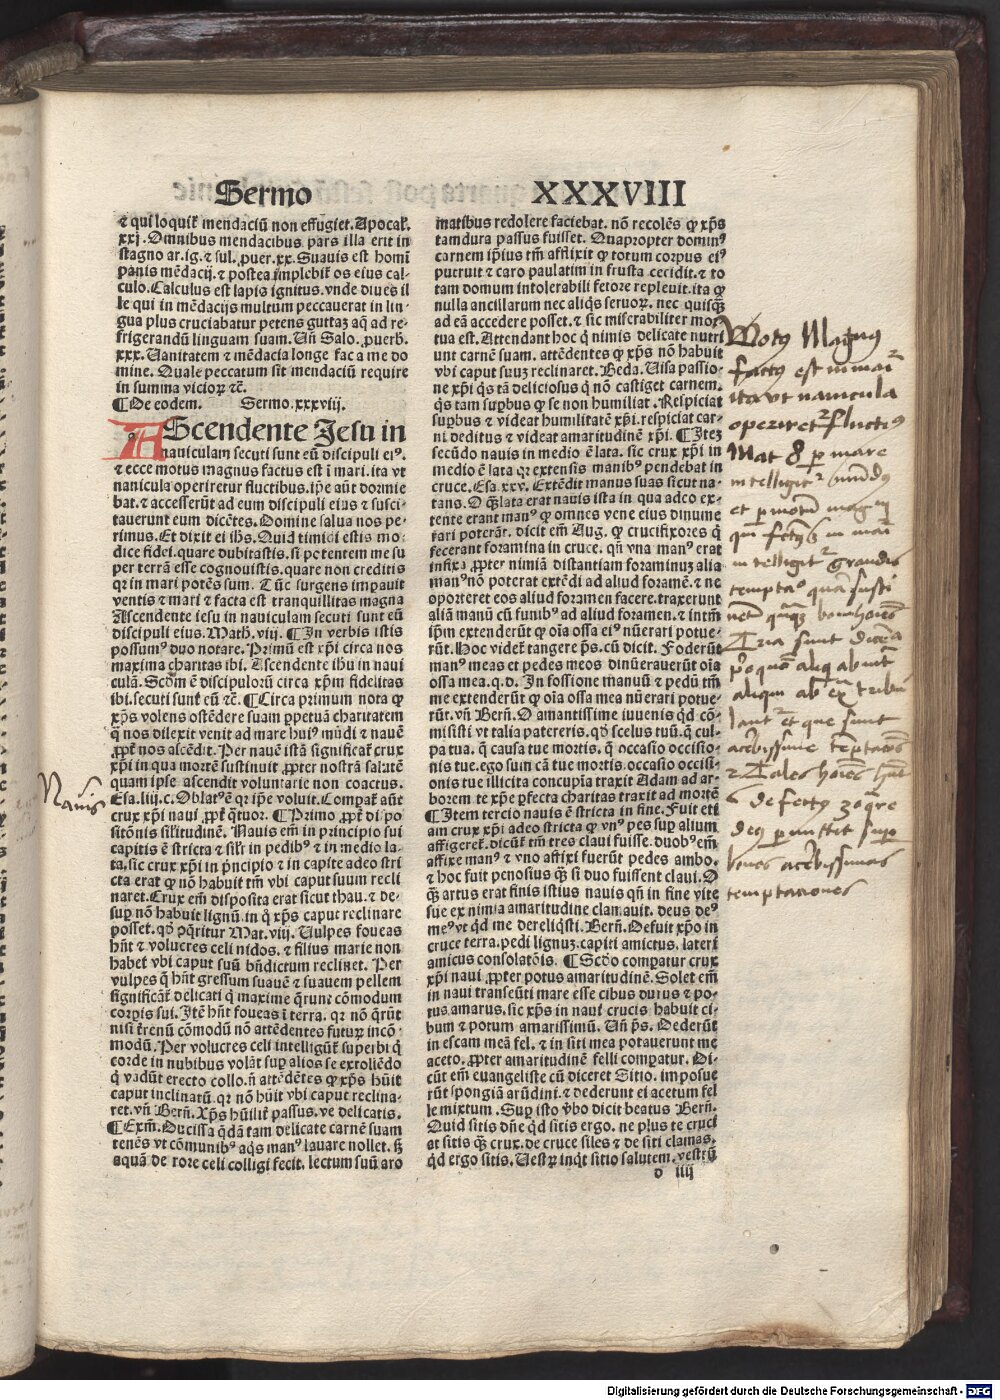 Sermo XXXVIII
⁊ qui loquit᷑ mendaciū non effugiet. Apocal̄.
xxj. Omnibus mendacibus pars illa erit in
stagno ar. ig. ⁊ sul. puer. xx. Suauis est homī
panis mēdacij. ⁊ postea implebit᷑ os eius cal-
culo. Calculus est lapis ignitus. vnde diues il
le qui in mēdacijs multum peccauerat in lin-
gua plus cruciabatur petens guttaʒ aq̄ ad re-
frigerandū linguam suam. Vn̄ Salo. puerb.
xxx. Vanitatem ⁊ mēdacia longe fac a me do
mine. Quale peccatum sit mendaciū require
in summa vicioꝝ ⁊c̄.
¶ De eodem. Sermo. xxxviij.
AScendente Jesu in
nauiculam secuti sunt eū discipuli ei⁹.
⁊ ecce motus magnus factus est ī mari. ita vt
nauicula operiretur fluctibus. ip̄e aūt dormie
bat. ⁊ accesserūt ad eum discipuli eius ⁊ susci-
tauerunt eum dicētes. Domine salua nos pe-
rimus. Et dixit ei ih̄s. Quid timidi estis mo-
dice fidei. quare dubitastis. si potentem me su
per terrā esse cognouistis. quare non creditis
qꝛ in mari potēs sum. Tūc surgens imꝑauit
ventis ⁊ mari ⁊ facta est tranquillitas magna
Ascendente iesu in nauiculam secuti sunt eū
discipuli eius. Math. viij. ¶ In verbis istis
possum⁹ duo notare. Primū est xp̄i circa nos
maxima charitas ibi. Ascendente ihū in naui
culā. Scd̄m ē discipulorū circa xp̄m fidelitas
ibi. secuti sunt eū ⁊c̄. ¶ Circa primum nota ꝙ
xp̄s volens ostēdere suam ꝑpetuā charitatem
q̄ nos dilexit venit ad mare hui⁹ mūdi ⁊ nauē
ꝓpt̄ nos ascēdit. Per nauē istā significat᷑ crux
xp̄i in qua mortē sustinuit ꝓpter nostrā salutē
quam ipse ascendit voluntarie non coactus.
Esa. liij. c. Oblat⁹ ē qꝛ ip̄e voluit. Compat᷑ aūt
crux xp̄i naui ꝓpt̄ q̄tuor. ¶ Primo ꝓpt̄ dispo
sitōnis sil̄itudinē. Nauis em̄ in principio sui
capitis ē stricta ⁊ sil̄r in pedib⁹ ⁊ in medio la-
ta. sic crux xp̄i in p̄ncipio ⁊ in capite adeo stri
cta erat ꝙ nō habuit tm̄ vbi caput suum recli
naret. Crux em̄ disposita erat sicut thau. ⁊ de-
suꝑ nō habuit lignū. in q̄ xp̄s caput reclinare
posset. qd̓ p̄q̄ritur Mat. viij. Vulpes foueas
hn̄t ⁊ volucres celi nidos. ⁊ filius marie non
habet vbi caput suū bn̄dictum reclinet. Per
vulpes q̄ hn̄t gressum suauē ⁊ suauem pellem
significāt᷑ delicati q̄ maxime q̄runt cōmodum
corꝑis sui. Jtē hn̄t foueas ī terra. qꝛ nō q̄rūt
nisi t̄renū cōmodū nō attēdentes futuꝝ incō-
modū. Per volucres celi intelligūt᷑ superbi q̄
corde in nubibus volāt suꝑ alios se extollēdo
q̄ vadūt erecto collo. n̄ attēdētes ꝙ xp̄s hūit
caput inclinatū. qꝛ nō hūit vbi caput reclina-
ret. vn̄ Bern̄. Xp̄s hūilit᷑ passus. ve delicatis.
¶ Exm̄. Ducissa q̄dā tam delicate carnē suam
tenēs vt cōmunib⁹ aq̄s man⁹ lauare nollet. sꝫ
aquā de rore celi colligi fecit. lectum suū aro
matibus redolere faciebat. nō recolēs ꝙ xp̄s
tam dura passus fuisset. Quapropter domin⁹
carnem ip̄ius tm̄ afflixit ꝙ totum corpus ei⁹
putruit ⁊ caro paulatim in frusta cecidit. ⁊ to
tam domum intolerabili fetore repleuit. ita ꝙ
nulla ancillarum nec aliq̄s seruoꝝ. nec quisq̄
ad eā accedere posset. ⁊ sic miserabiliter mor
tua est. Attendant hoc q̄ nimis delicate nutri
unt carnē suam. attēdentes ꝙ xp̄s nō habuit
vbi caput suuʒ reclinaret. Beda. Visa passio-
ne xp̄i q̄s tā deliciosus q̄ nō castiget carnem.
q̄s tam suꝑbus ꝙ se non humiliat. Respiciat
suꝑbus ⁊ videat humilitatē xp̄i. respiciat car-
ni deditus ⁊ videat amaritudinē xp̄i. ¶ Iteʒ
secūdo nauis in medio ē lata. sic crux xp̄i in
medio ē lata qꝛ extensis manib⁹ pendebat in
cruce. Esa. xxv. Extēdit manus suas sicut na-
tans. O q̄ lata erat nauis ista in qua adeo ex-
tente erant man⁹ ꝙ omnes vene eius dinume
rari poterāt. dicit em̄ Aug. ꝙ crucifixores q̄
fecerant foramina in cruce. qn̄ vna man⁹ erat
infixa ꝓpter nimiā distantiam foraminuʒ alia
man⁹ nō poterat extēdi ad aliud foramē. ⁊ ne
oporteret eos aliud foramen facere. traxerunt
aliā manū cū funib⁹ ad aliud foramen. ⁊ intm̄
ip̄m extenderūt ꝙ oīa ossa ei⁹ nūerari potue-
rūt. Hoc videt᷑ tangere ps̄. cū dicit. Foderūt
man⁹ meas et pedes meos dinūerauerūt oīa
ossa mea. q. d. In fossione manuū ⁊ pedū tm̄
me extenderūt ꝙ oīa ossa mea nūerari potue-
rūt. vn̄ Bern̄. O amantissime iuuenis qd̓ cō-
misisti vt talia patereris. qd̓ scelus tuū. q̄ cul-
pa tua. q̄ causa tue mortis. q̄ occasio occisio-
nis tue. ego sum cā tue mortis. occasio occisi-
onis tue illicita concupīa traxit Adam ad ar-
borem. te xp̄e ꝑfecta charitas traxit ad mortē
¶ Item tercio nauis ē stricta in fine. Fuit eti
am crux xp̄i adeo stricta ꝙ vn⁹ pes suꝑ alium
affigeret᷑. dicūt᷑ tm̄ tres claui fuisse. duob⁹ em̄
affixe man⁹ ⁊ vno affixi fuerūt pedes ambo.
⁊ hoc fuit penosius q̄ si duo fuissent claui. O
q̄ artus erat finis istius nauis qn̄ in fine vite
sue ex nimia amaritudine clamauit. deus de⁹
me⁹ vt qd̓ me dereliq̄sti. Bern̄. Defuit xp̄o in
cruce terra. pedi lignuʒ. capiti amictus. lateri
amicus consolatōis. ¶ Scd̓o compatur crux
xp̄i naui ꝓpter potus amaritudinē. Solet em̄
in naui transeūti mare esse cibus durus ⁊ po-
tus amarus. sic xp̄s in naui crucis habuit ci-
bum ⁊ potum amarissimū. Vn̄ ps̄. Dederūt
in escam meā fel. ⁊ in siti mea potauerunt me
aceto. ꝓpter amaritudinē felli compatur. Di-
cūt em̄ euangeliste cū diceret Sitio. imposue
rūt spongiā arūdini. ⁊ dederunt ei acetum fel
le mixtum. Suꝑ isto v̄bo dicit beatus Bern̄.
Quid sitis dn̄e qd̓ sitis ergo. ne plus te cruci
at sitis q̄ crux. de cruce siles ⁊ de siti clamas.
qd̓ ergo sitis. Vestrā inq̄t sitio salutem. vestrū
o iiij
Nauis
Mot⁹ Magn⁹
fact⁹ est in mari
ita vt nauicula
operiret᷑ fluctib⁹
Mat 8 ꝑ mare
intelligit᷑ mūd⁹
et ꝑ motū magnū
intelligit᷑ grandis
Tria sunt
deq̄ ꝑmittit suꝑ
bonos acerbissimas
temptationes
Digitalisierung gefördert durch die Deutsche Forschungsgemeinschaft - DFG